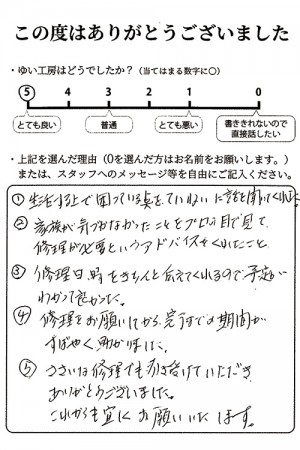 この度はありがとうございました
・ゆい工房はどうでしたか？（当てはまる数字に○）
5 4 3 2 1 0
とても良い 普通 とても悪い 書ききれないので
直接話したい
・上記を選んだ理由（0を選んだ方はお名前をお願いします。）
または、スタッフへのメッセージ等を自由にご記入ください。
①生活する上で困っている点をていねいに話を聞いてくれた
②家族が気づかなかったことをプロの目で見て、
修理が必要というアドバイスをくれたこと。
③修理日、時をきちんと伝えてくれるので予定が
わかって良かった。
④修理をお願いしてから、完了までの期間が
すばやく助かりました。
⑤小さいな修理でも引き受けていただき
ありがとうございました。
これからも宜しくお願いいたします。